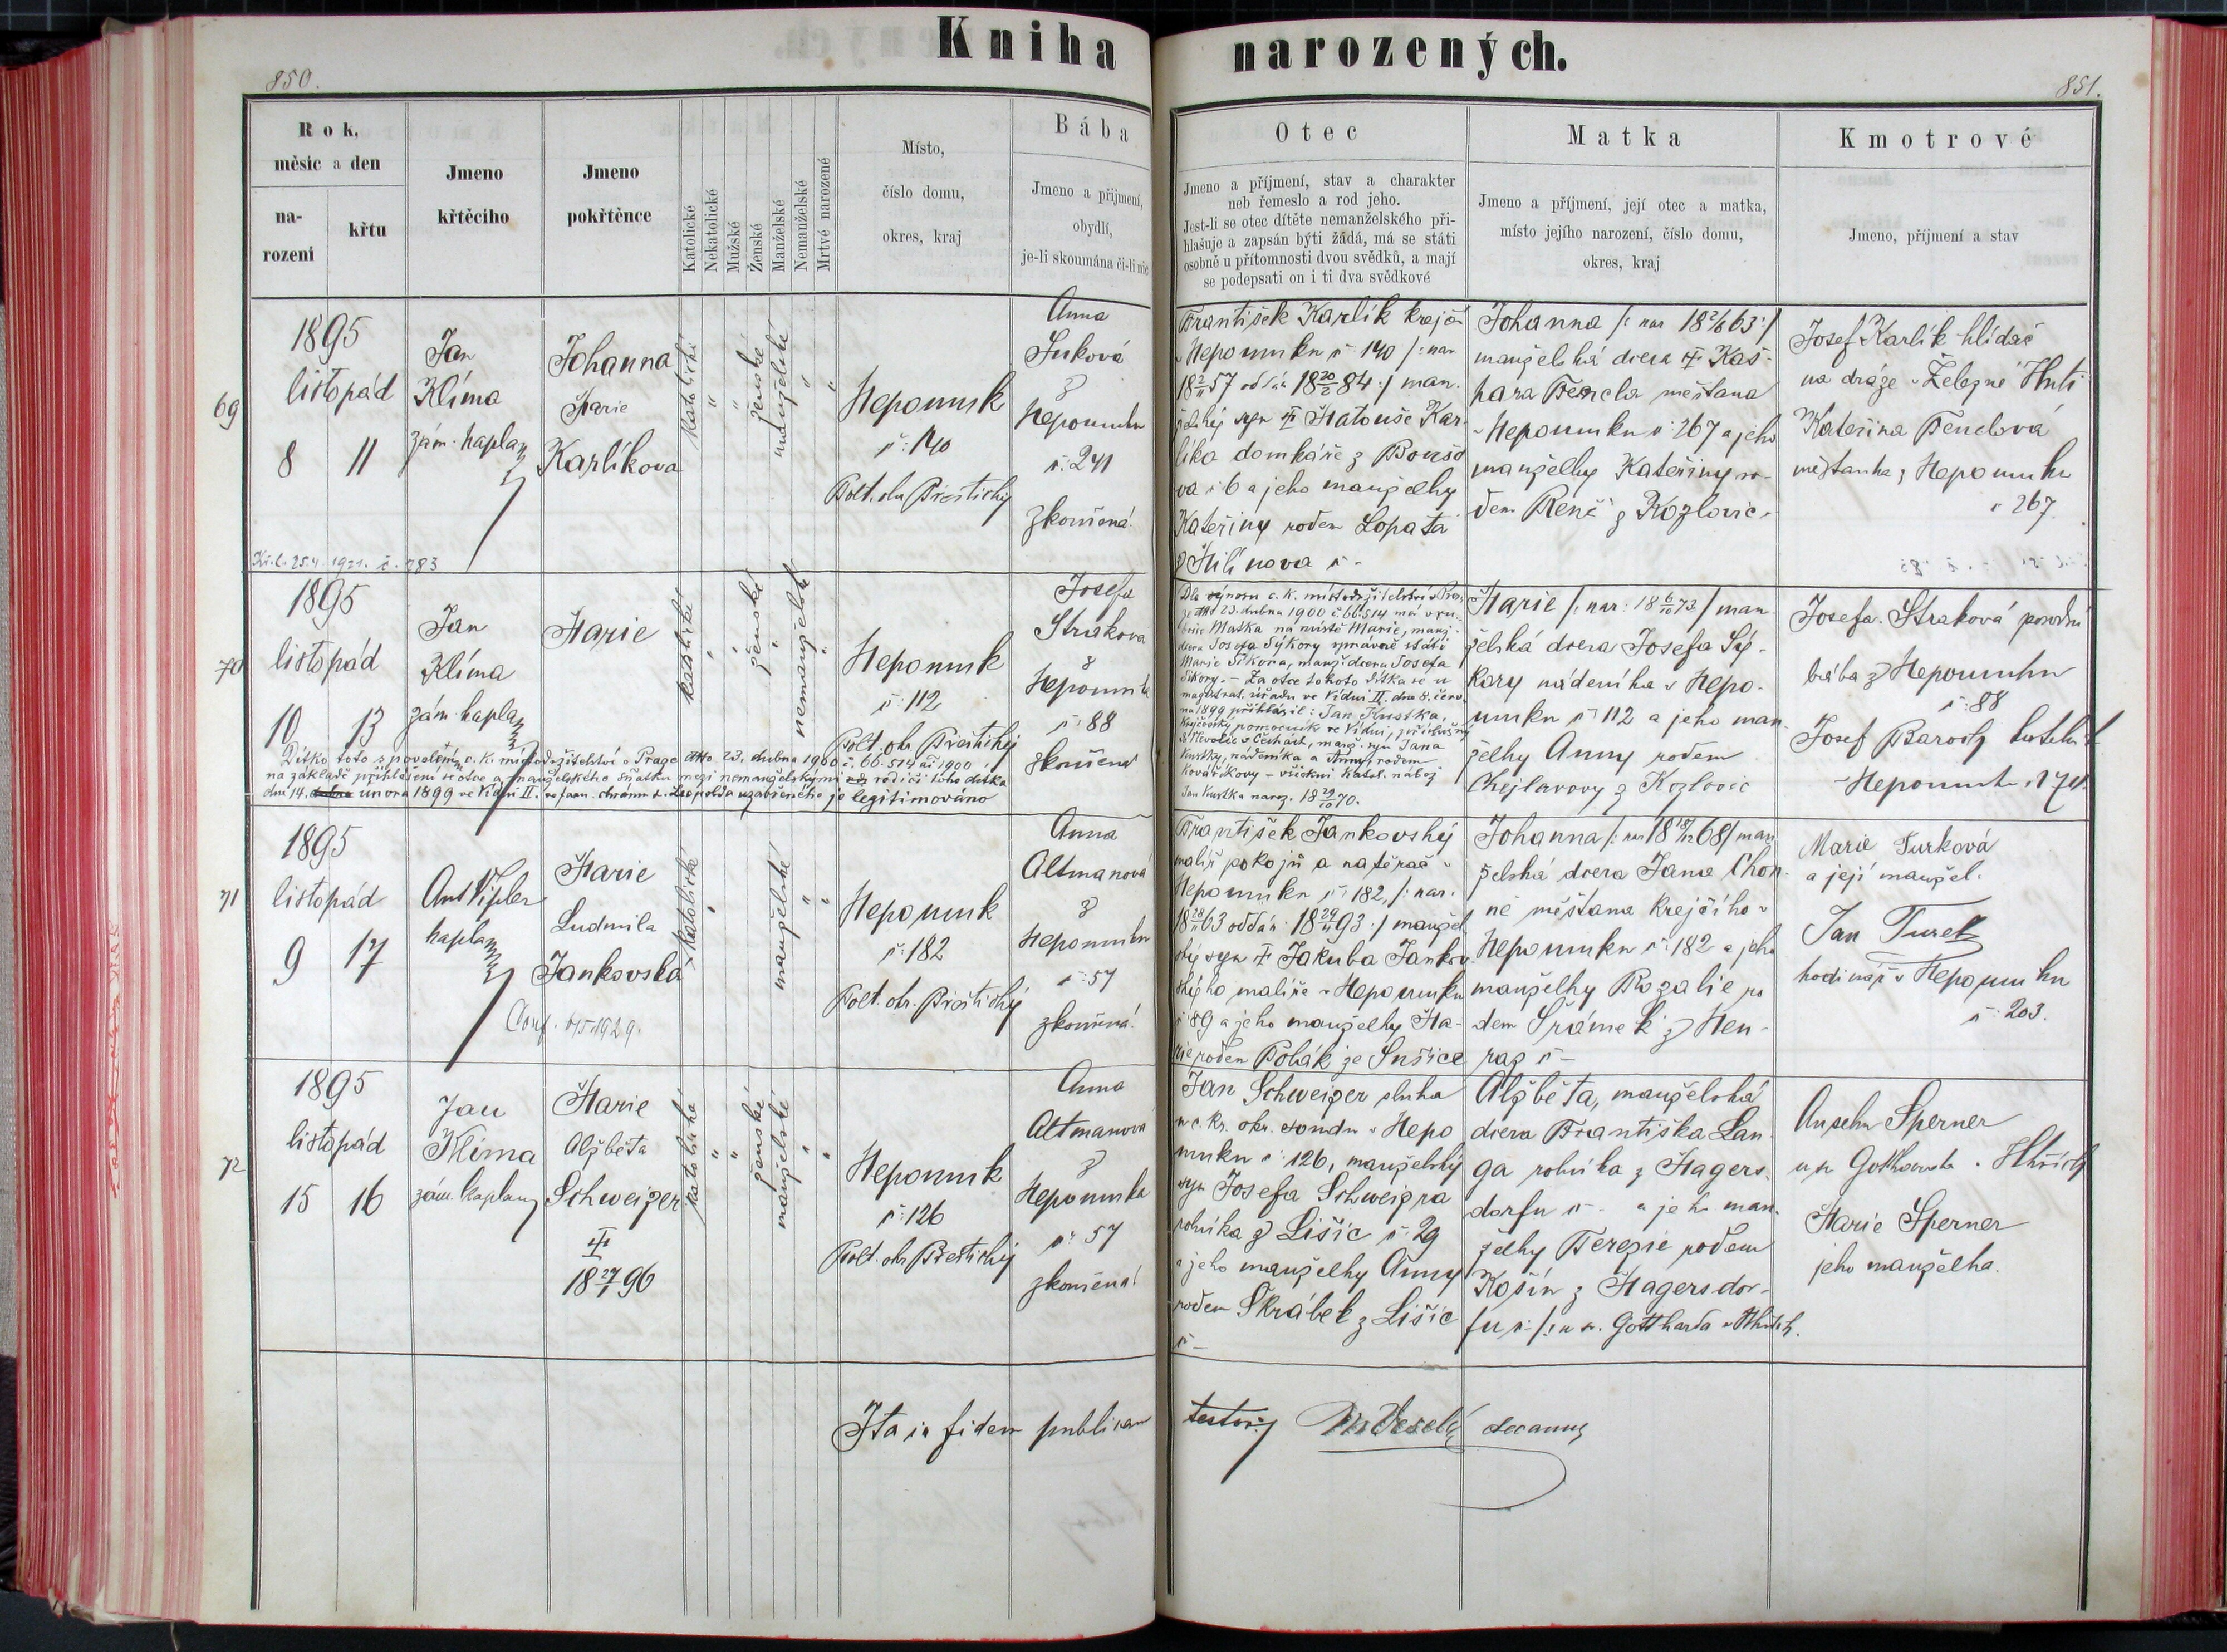 Kniha narozených.
850.
851.
Rok, měsíc a den
narození
křtu
Jmeno křtěcího
Jmeno pokřtěnce
Katolické
Nekatolické
Mužské
Ženské
Manželské
Nemanželské
Mrtvé narozené
Místo,
číslo domu,
okres, kraj
Bába
Jmeno a příjmení,
obydlí,
je-li zkoumána či-li nic
Otec
Jmeno a příjmení, stav a charakter
neb řemeslo a rod jeho.
Jest-li se otec dítěte nemanželského při-
hlašuje a zapsán býti žádá, má se státi
osobně u přítomnosti dvou svědků, a mají
se podepsati on i ti dva svědkové
Matka
Jmeno a příjmení, její otec a matka,
místo jejího narození, číslo domu,
okres, kraj
Kmotrové
Jmeno, příjmení a stav
69
1895
listopád
8 11
Jan
Klíma
zám. kaplan
Johanna
Marie
Karlíkova
katolické
ženské
manželské
Nepomuk
č: 140
Polt. okr. Přeštický
Anna
Suková
z
Nepomuku
č: 241
zkoušená.
František Karlík krejčí
v Nepomuku č 140 /: nar.
18 2/11 57 oddán 18 20/2 84 :/ man-
želský syn † Matouše Kar-
líka domkáře z
č 6 a jeho manželky
Kateřiny rodem Lopata
z Milínova č -
Johanna /: nar 18 2/6 63 :/
manželská dcera † Kaš-
para Bencla měšťana
v Nepomuku č: 267 a jeho
manželky Kateřiny ro-
dem Renč z Kozlovic
Josef Karlík hlídač
na dráze v Železné Huti
Kateřina Benclová
měšťanka z Nepomuku
č 267.
Kř. l. 25.4. 1921. č. 783
70
1895
listopád
10 13
Jan
Klíma
zám. kaplan
Marie
katolické
ženské
nemanželské
Nepomuk
č: 112
Polt. okr. Přeštický
Josefa
Strakova
z
Nepomuku
č: 88
zkoušená
Dle výnosu c. k. místodržitelství v Pra-
ze dto 23. dubna 1900 č. 66.514 má v ru-
brice Matka na místě Marie, manž.
dcera Josefa Sýkory správně státi
Marie Sikora, manž. dcera Josefa
Sikory. – Za otce tohoto dítka se u
magistrat. úřadu ve Vídni II. dne 8. červ-
na 1899 přihlásil: Jan Kustka,
krejčovský pomocník ve Vídni, příslušný
v Čechách, manž. syn Jana
Kustky, nádeníka a Anny, rodem
Kovaříkovy – všickni katol. nábož.
Jan Kustka naroz. 18 29/10 70.
Marie /: nar: 18 6/10 73 / man-
želská dcera Josefa Sý-
kory nádeníka v Nepo-
muku č 112 a jeho man-
želky Anny rodem
Chejlavovy z Kozlovic
Josefa Straková porodní
bába z Nepomuku
č: 88
Josef
v Nepomuku č. 174
Dítko toto s povolením c. k. místodržitelství v Praze dtto 23. dubna 1900 č. 66.514 ai 1900
na základě přihlášení se otce a manželského sňatku mezi nemanželskými rodiči toho dítka
dne 14. února 1899 ve Vídni II. ve farn. chrámu s. Leopolda uzavřeného je legitimováno
71
1895
listopád
9 17
Ant. Vipler
kaplan
Marie
Ludmila
Jankovska
katolické
manželské
Nepomuk
č: 182
Polt. okr. Přeštický
Anna
Altmanová
z
Nepomuku
č: 57
zkoušená.
František Jankovský
malíř pokojů a natěrač v
Nepomuku č: 182, /: nar.
18 28/11 63 oddán: 18 29/4 93 :/ manžel-
ský syn † Jakuba Jankov-
ského malíře v Nepomuku
č 89 a jeho manželky Ma-
rie rodem Polák ze Sušice
Johanna /: nar 18 18/12 68 / man-
želská dcera Jana Chon-
ně měšťana krejčího v
Nepomuku č: 182 a jeho
manželky Rozalie ro
dem Šrámek z
č –
Marie Turková
a její manžel.
Jan Turek
hodinář v Nepomuku
č: 203.
72
1895
listopád
15 16
Jan
Klíma
zám. kaplan
Marie
Alžběta
Schweiger
†
18 27/1 96
katolické
ženské
manželské
Nepomuk
č: 126
Polt. okr. Přeštický
Anna
Altmanová
z
Nepomuku
č: 57
zkoušená
Jan Schweiger sluha
u c. kr. okr. soudu v Nepo
muku č: 126, manželský
syn Josefa Schweigra
rolníka z Lišic č: 29
a jeho manželky Anny
rodem Skrábek z Lišic
č –
Alžběta, manželská
dcera Františka Lan-
ga rolníka z Hagers-
dorfu č - a jeho man-
želky Terezie rodem
Košín z Hagersdor-
fu č: /: u sv. Gottharda v
Anselm Sperner
u sv
Marie Sperner
jeho manželka.
Ita in fidem publicam testor Veselý decanus